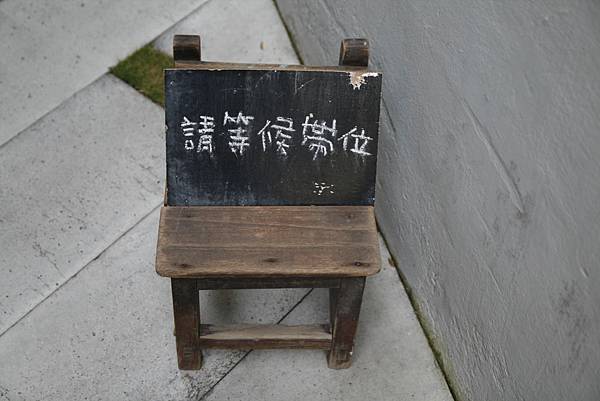 請等候帶位